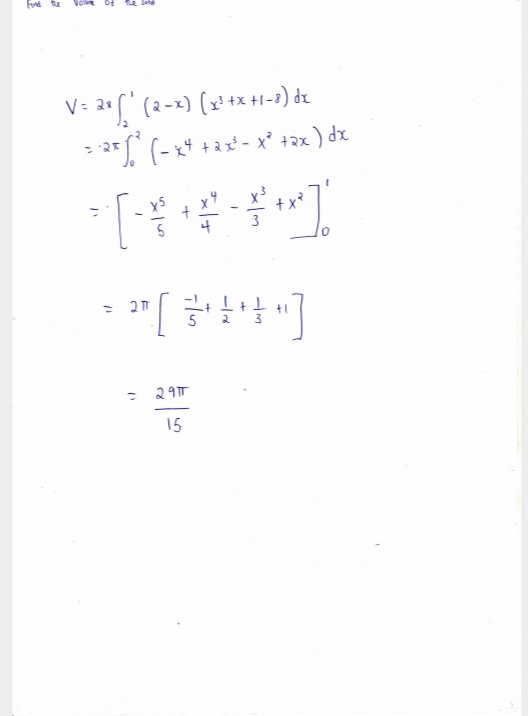 Find the Volume of the Solid
V = 2π∫₂¹ (2-x) (x³+x+1-8) dx
= -2π∫₀² (-x⁴ + 2x³ - x² + 2x) dx
= [-x⁵/5 + x⁴/4 - x³/3 + x²]₀¹
= 2π [-1/5 + 1/2 + 1/3 + 1]
= 29π/15